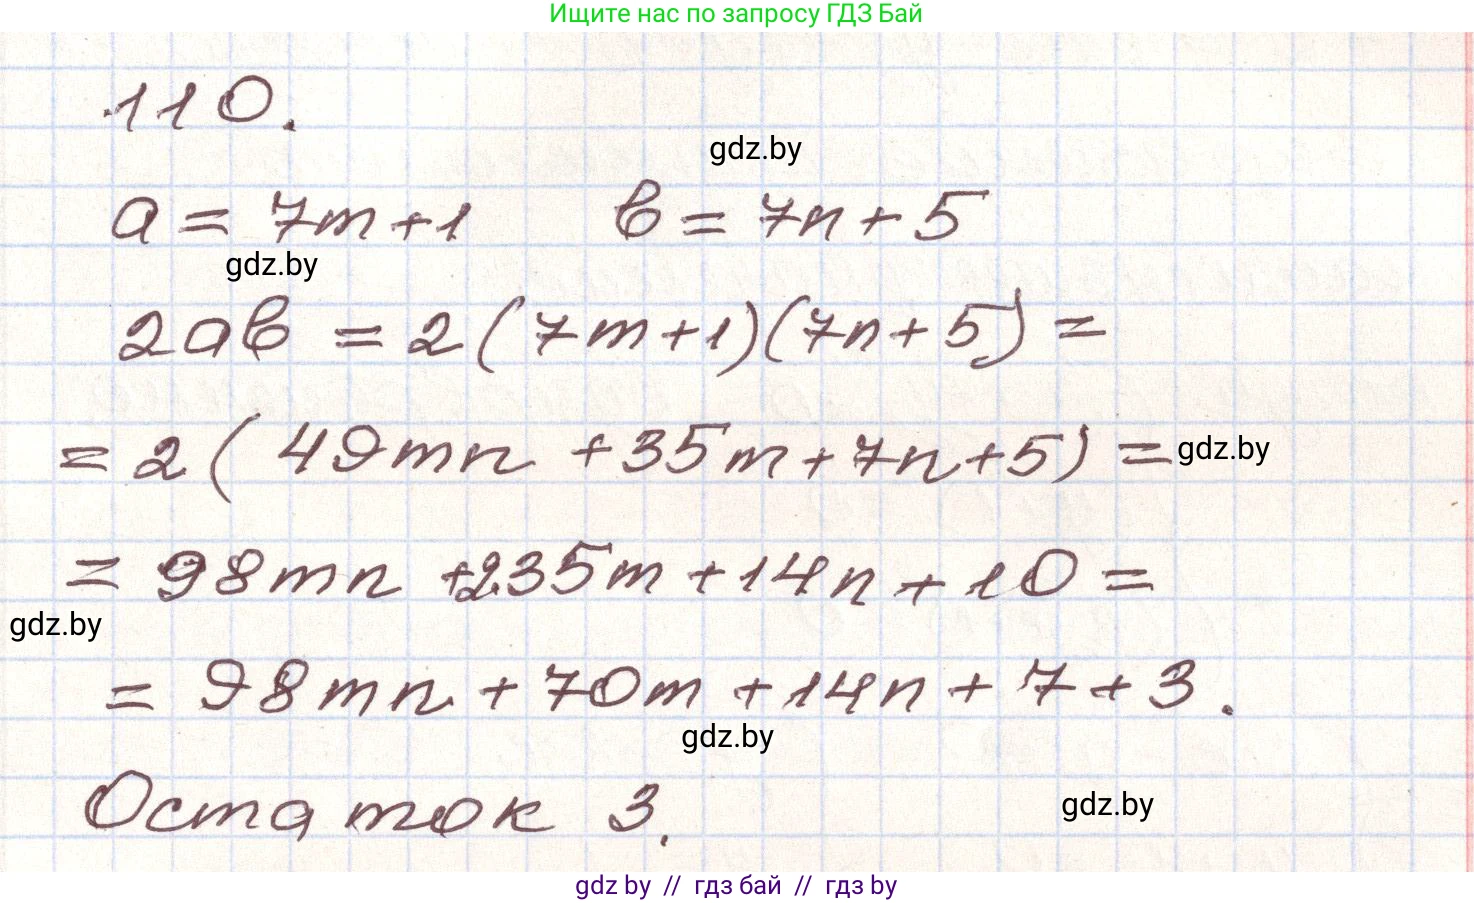 Ищите нас по запросу ГДЗ Бай
110.
gdz.by
a = 7m + 1 b = 7n + 5
gdz.by
2ab = 2(7m+1)(7n+5) =
= 2(49mn + 35m + 7n + 5) = gdz.by
= 98mn + 235m + 14n + 10 =
gdz.by
= 98mn + 70m + 14n + 7 + 3.
gdz.by
Остаток 3.
gdz.by
gdz by // гдз бай // гдз by